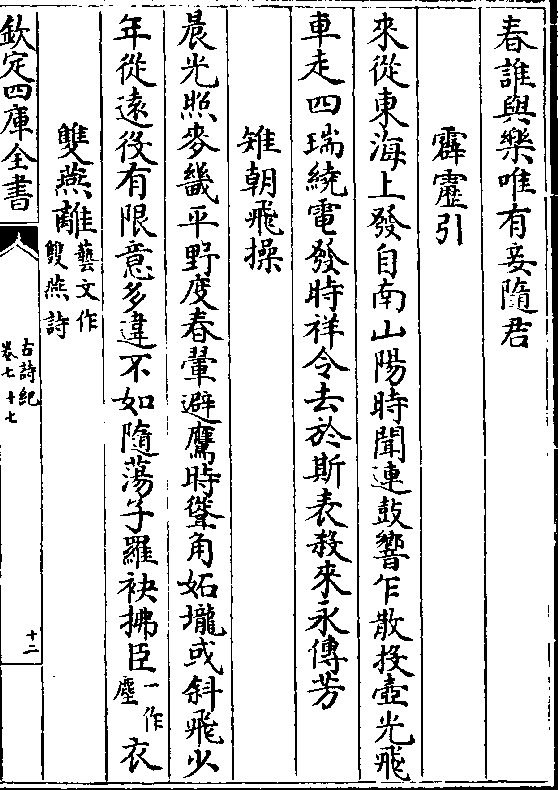 春誰與樂唯有妾隨君
霹靂引
來從東海上發自南山陽時聞連鼓響乍散投壺光飛
車走四瑞繞電發時祥令去於斯表殺來永傳芳
雉朝飛操
晨光照麥畿平野度春翬避鷹時聳角妬壠或斜飛少
年從遠役有限意多違不如隨蕩子羅袂拂臣一作塵衣
雙燕離藝文作雙燕詩
欽定四庫全書
古詩紀
卷七十七
十二